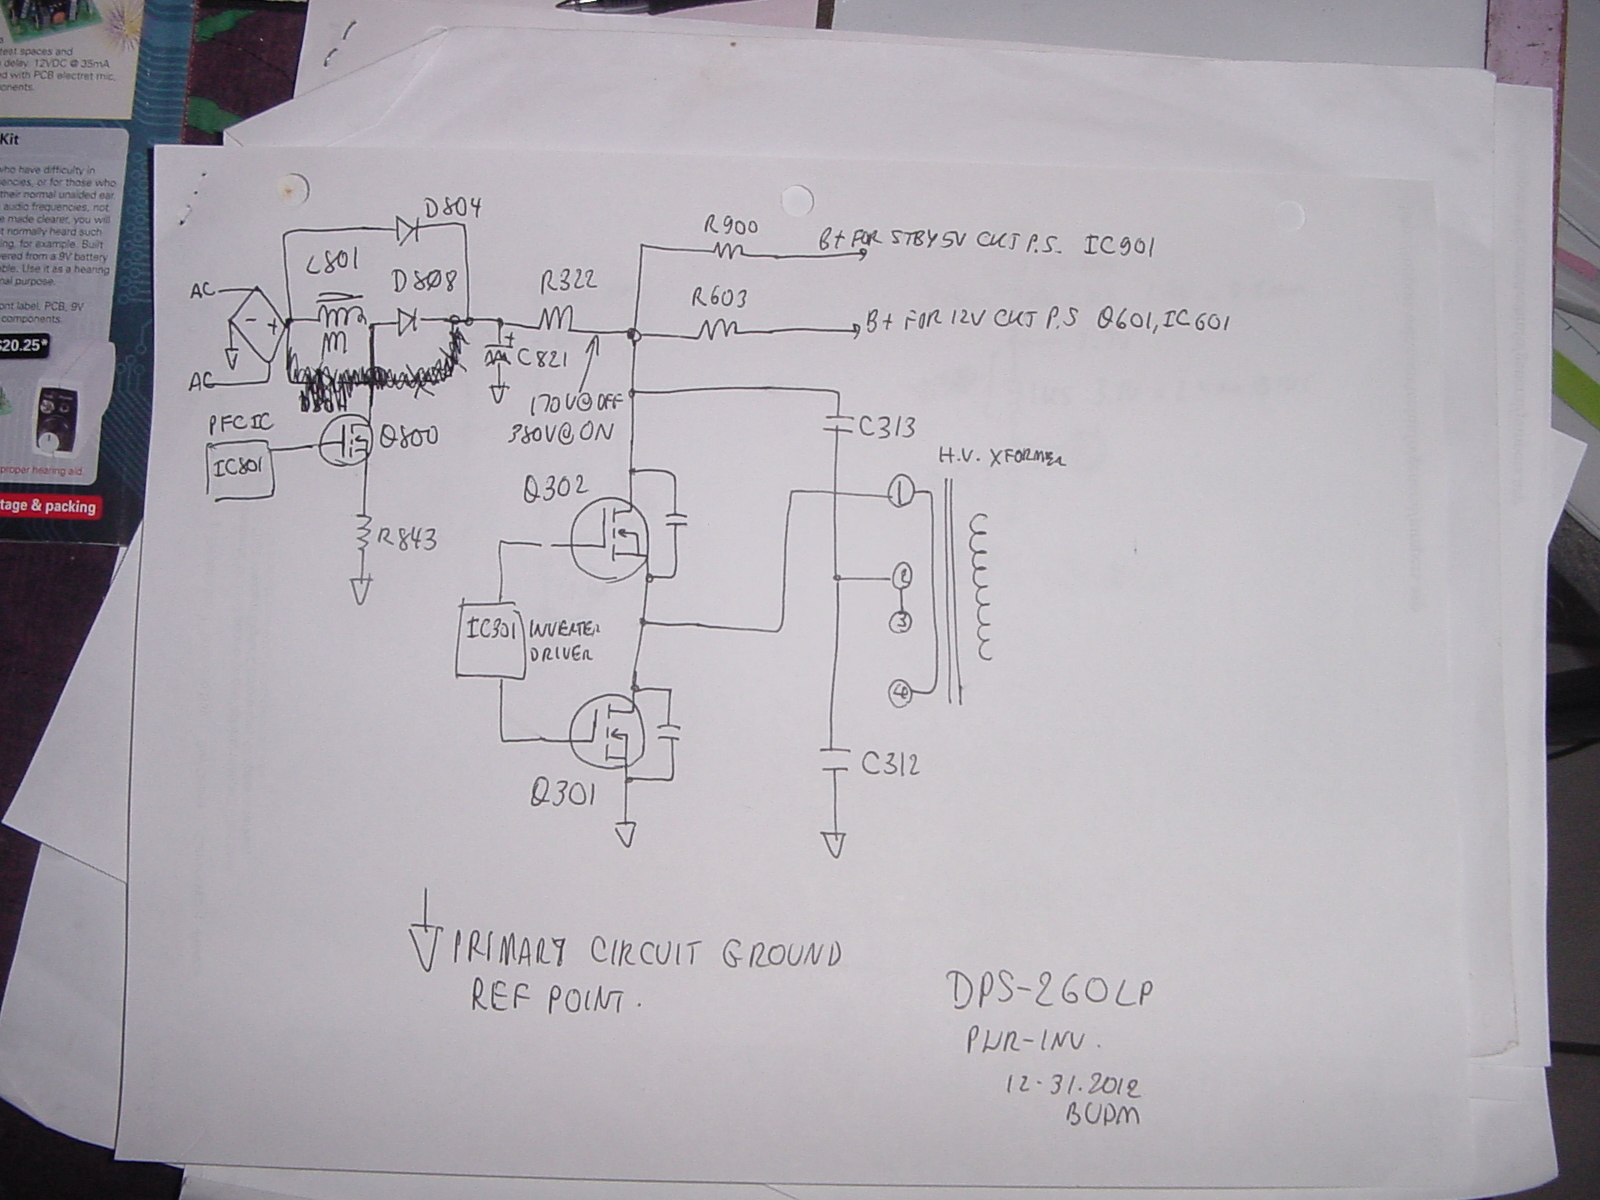 test spaces and
delay. 12VDC @ 35mA
d with PCB electret mic,
onents.
Kit
who have difficulty in
ancies, or for those who
their normal unaided ear
audio frequencies, not
e made clearer, you will
t normally heard such
ing, for example. Built
vered from a 9V battery
ble. Use it as a hearing
nal purpose.
ont label, PCB, 9V
components.
$20.25*
proper hearing aid.
tage & packing
D804
L801
D808
AC
AC
- +
R322
R900
B+ FOR STBY 5V CKT P.S. IC901
R603
B+ FOR 12V CKT P.S Q601, IC601
+
C821
170V@OFF
380V@ON
PFC IC
IC801
Q800
R843
C313
H.V. XFORMER
Q302
1
2
3
4
IC301
INVERTER
DRIVER
Q301
C312
PRIMARY CIRCUIT GROUND
REF POINT.
DPS-260LP
PWR-INV.
12-31.2012
BUDM